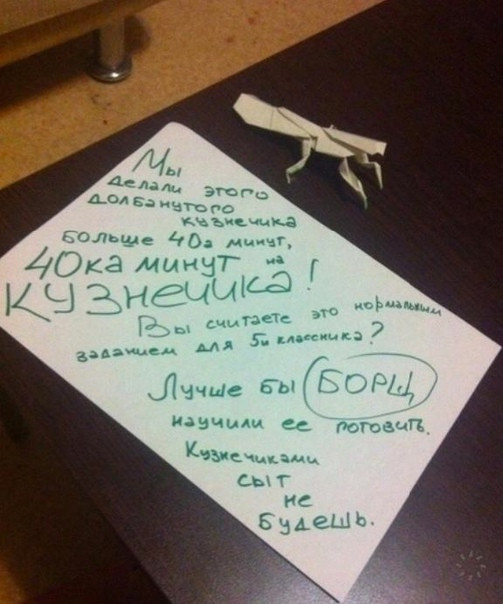 Мы
делали этого
долбанутого
кузнечика
больше 40а минут,
40ка минут на
кузнечика!
Вы считаете это нормальным
заданием для 5и классника?
Лучше бы БОРЩ
научили ее готовить.
Кузнечиками
сыт
не
будешь.